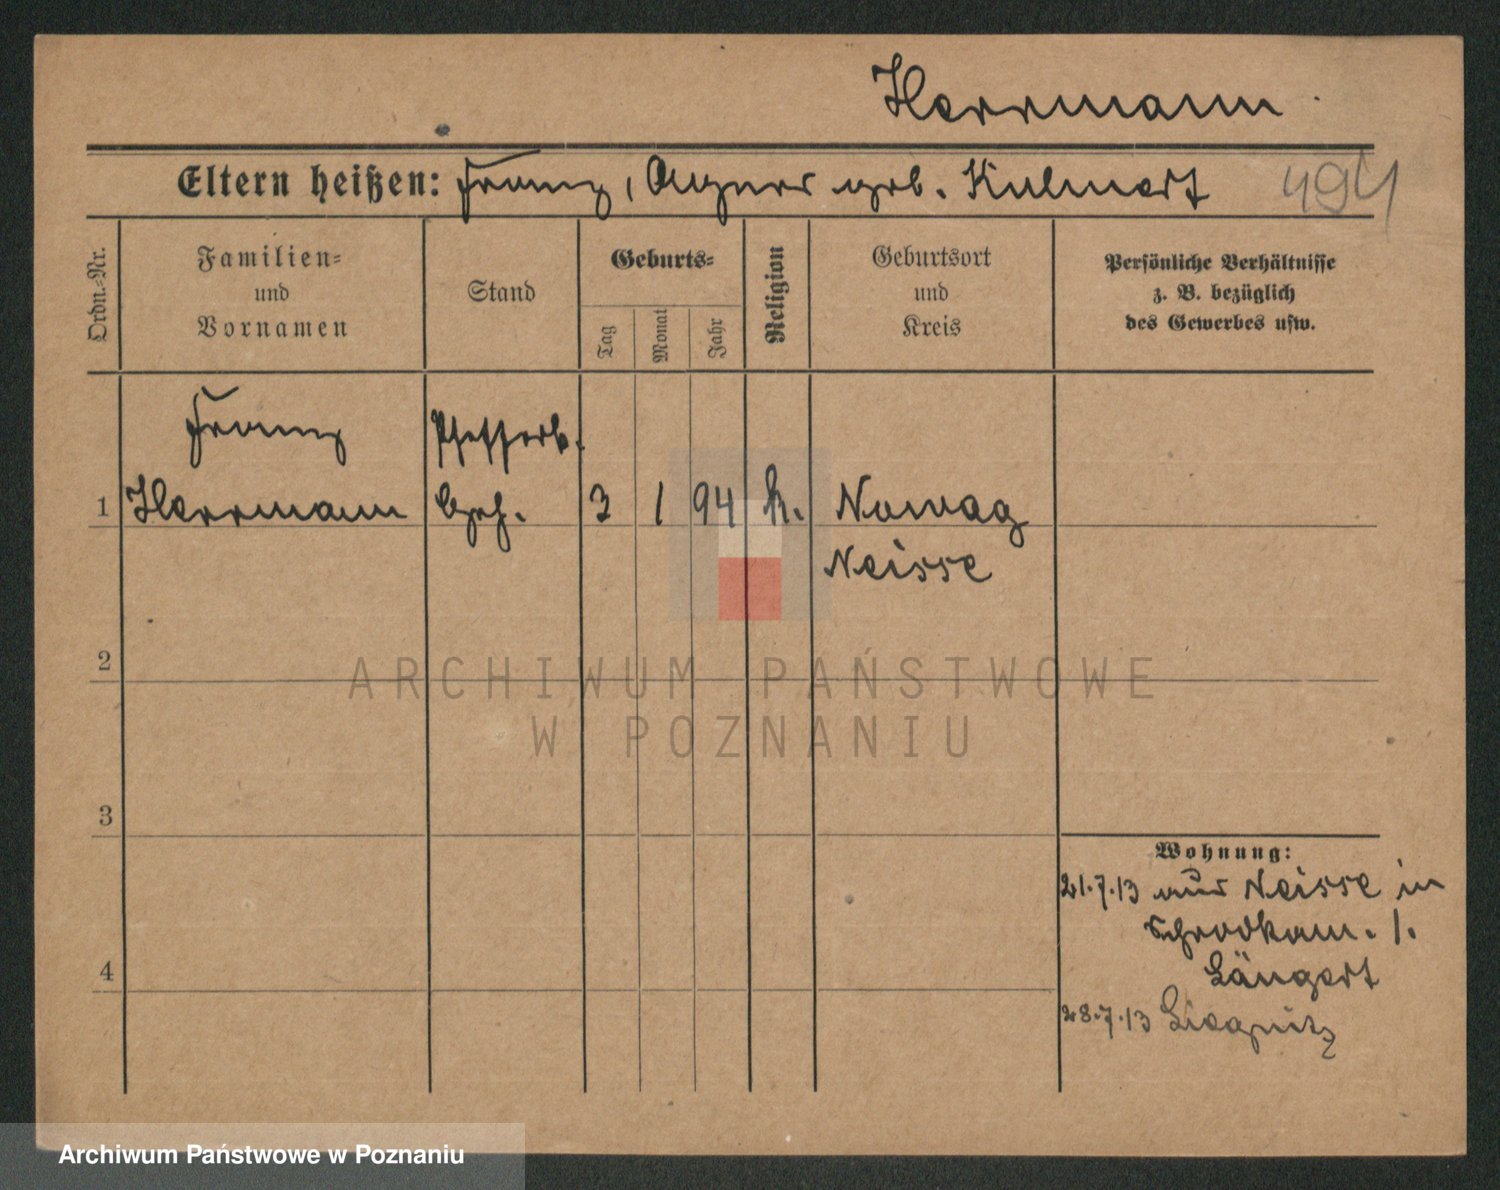 Herrmann
Eltern heißen: Franz, Agnes geb. Kulmert
494
Ordn.-Nr.
Familien-
und
Vornamen
Stand
Geburts-
Tag
Monat
Jahr
Religion
Geburtsort
und
Kreis
Persönliche Verhältnisse
z. B. bezüglich
des Gewerbes usw.
Franz
Pfefferk.
1 Herrmann Geh. 3 1 94 k. Nowag
Neisse
2
ARCHIWUM PAŃSTWOWE
W POZNANIU
3
Wohnung:
21.7.13 aus Neisse in
1.
4
28.7.13 Liegnitz
Archiwum Państwowe w Poznaniu